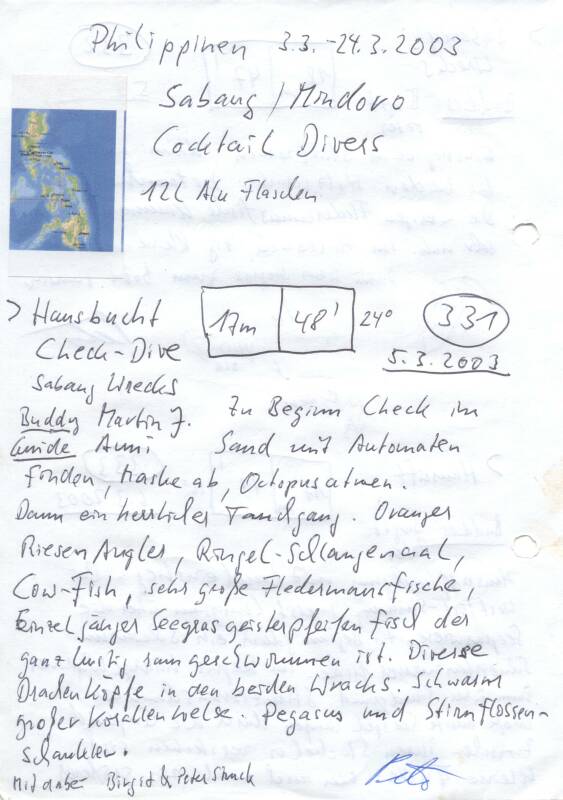 Philippinen 3.3.-24.3.2003
Sabang/Mindoro
Cocktail Divers
12L Alu Flaschen
> Hausbucht 17m 48' 24° 331
Check-Dive 5.3.2003
Sabang Wrecks
Buddy Martin J. Zu Beginn Check im
Guide Sand mit Automaten
finden, Maske ab, Octopusatmen.
Dann ein herrlicher Tauchgang. Oranger
Riesen Angler, Ringel-Schlangenaal,
Cow-Fish, sehr große Fledermausfische,
Einzelgänger Seegrasgeisterpfeifenfisch der
ganz lustig rumgeschwommen ist. Diverse
Drachenköpfe in den beiden Wracks. Schwarm
großer Korallenwelse. Pegasus und Stirnflossen-
schaukler.
Mit dabei Birgit & Peter